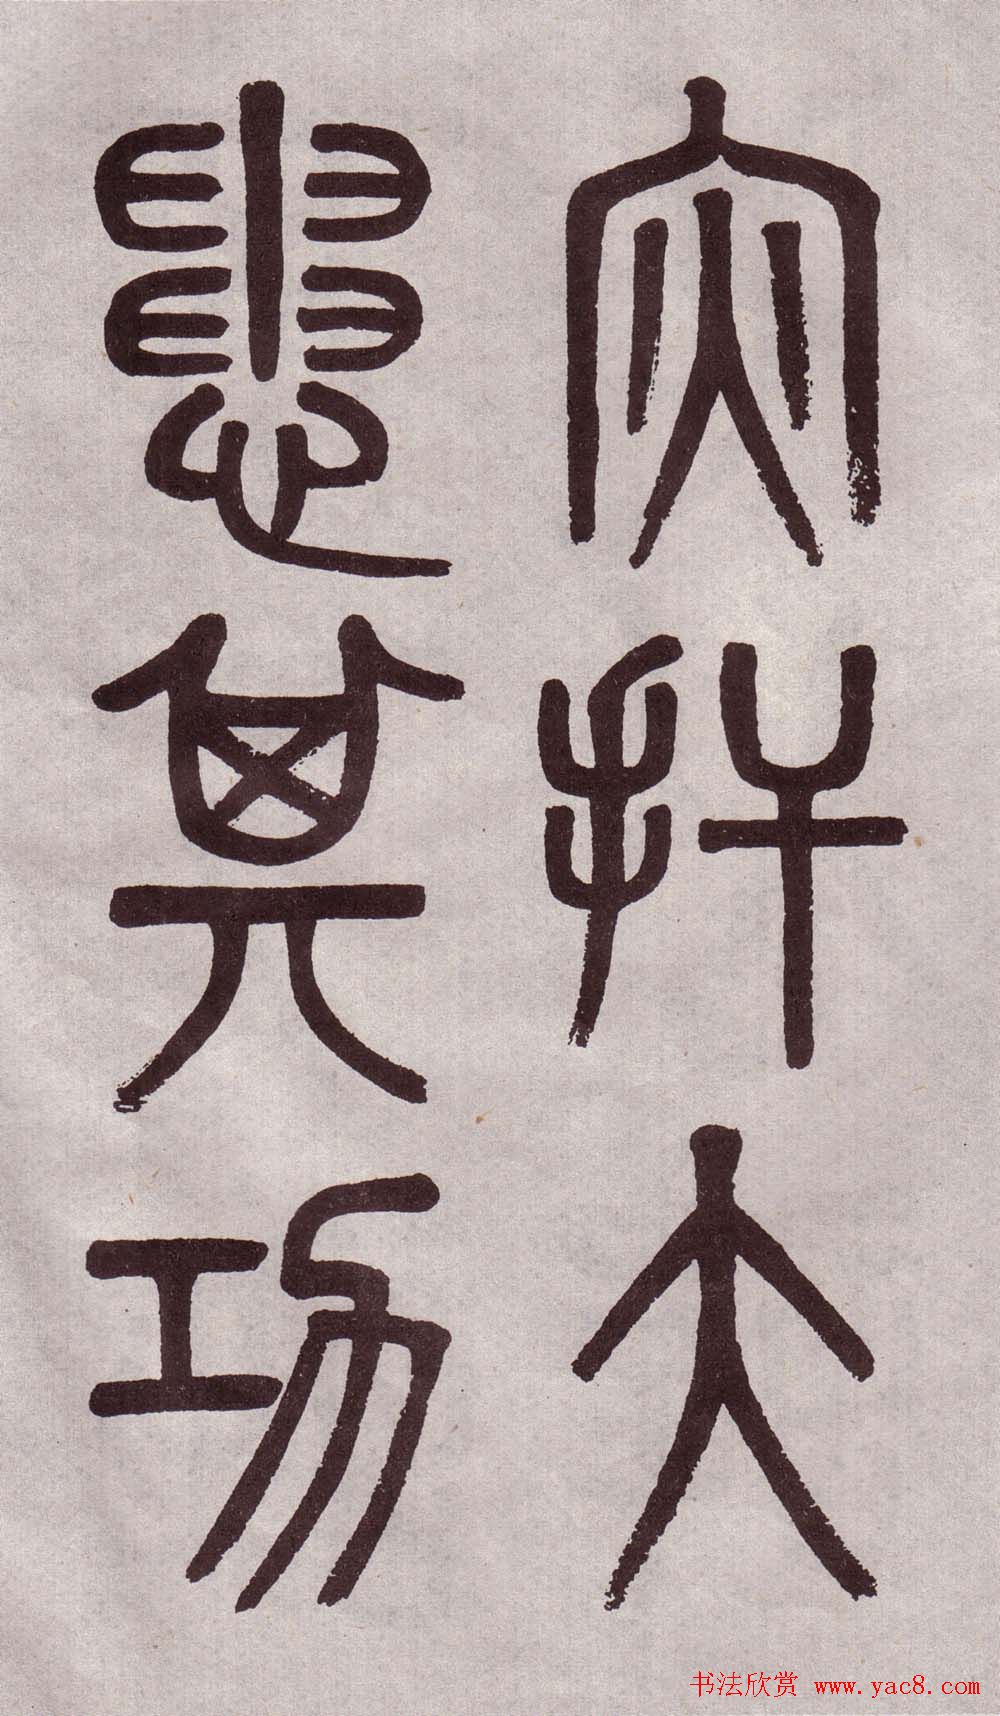 灾扞大
患其功
书法欣赏 www.yac8.com